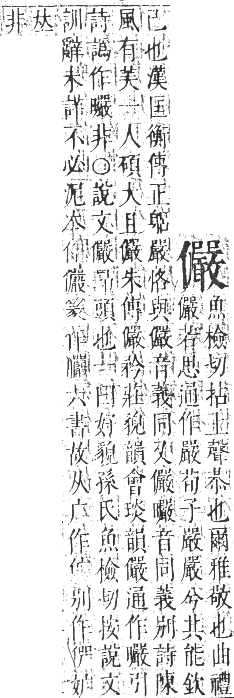 儼
魚檢切拈上聲恭也爾雅敬也曲禮
儼若思通作嚴荀子嚴嚴兮其能欽
己也漢匡衡傳正躬嚴恪與儼音義同又儼曮音同義別詩陳
風有美一人碩大且儼朱傳儼矜莊貌韻會琰韻儼通作曮引
詩譌作曮非○說文儼昂頭也一曰好貌孫氏魚檢切按說文
訓辭未詳不必泥本作儼篆作六書故从广作別作
𠀤
非